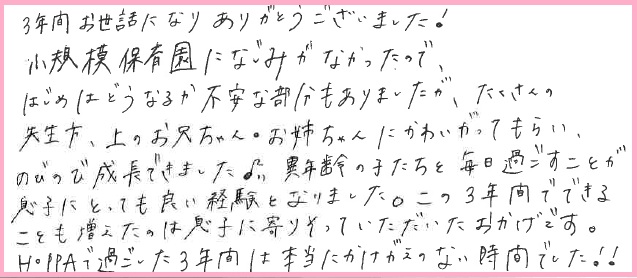 3年間お世話になりありがとうございました!
小規模保育園になじみがなかったので、
はじめはどうなるか不安な部分もありましたが、たくさんの
先生方、上のお兄ちゃん・お姉ちゃんにかわいがってもらい、
のびのび成長できました♫。異年齢の子たちと毎日過ごすことが
息子にとっても良い経験となりました。この3年間でできる
ことも増えたのは息子に寄りそっていただいたおかげです。
HOPPAで過ごした3年間は本当にかけがえのない時間でした!!